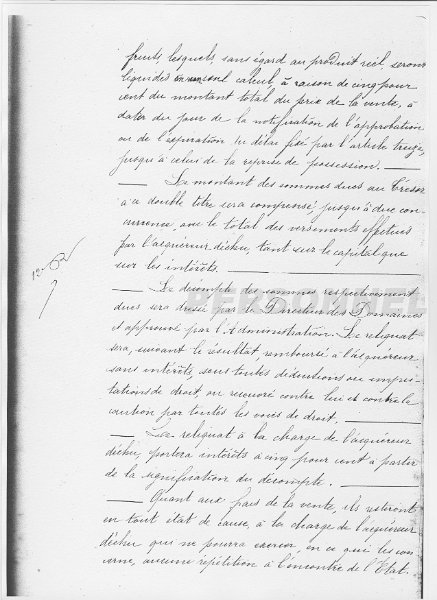 fruits, lesquels, sans égard au produit réel, seront
liquidés en un seul calcul, à raison de cinq pour
cent du montant total du prix de la vente, à
dater du jour de la notification de l'approbation
ou de l'expiration du délai fixé par l'article treize,
jusqu'à celui de la reprise de possession.
Le montant des sommes dues au Trésor
à ce double titre sera compensé jusqu'à due con-
currence, avec le total des versements effectués
par l'acquéreur déchu, tant sur le capital que
sur les intérêts.
Le décompte des sommes respectivement
dues sera dressé par le Directeur des Domaines
et approuvé par l'Administration. Le reliquat
sera, suivant le résultat remboursé à l'acquéreur
sans intérêts, sous toutes déductions ou impu-
tations de droit, ou recouvré contre lui et contre la
caution par toutes les voies de droit.
Le reliquat à la charge de l'acquéreur
déchu, portera intérêts à cinq pour cent à partir
de la signification du décompte.
Quant aux frais de la vente, ils resteront
en tout état de cause, à la charge de l'acquéreur
déchu qui ne pourra exercer, en ce qui les con-
cerne, aucune répétition à l'encontre de l'Etat.
PERSONNEL